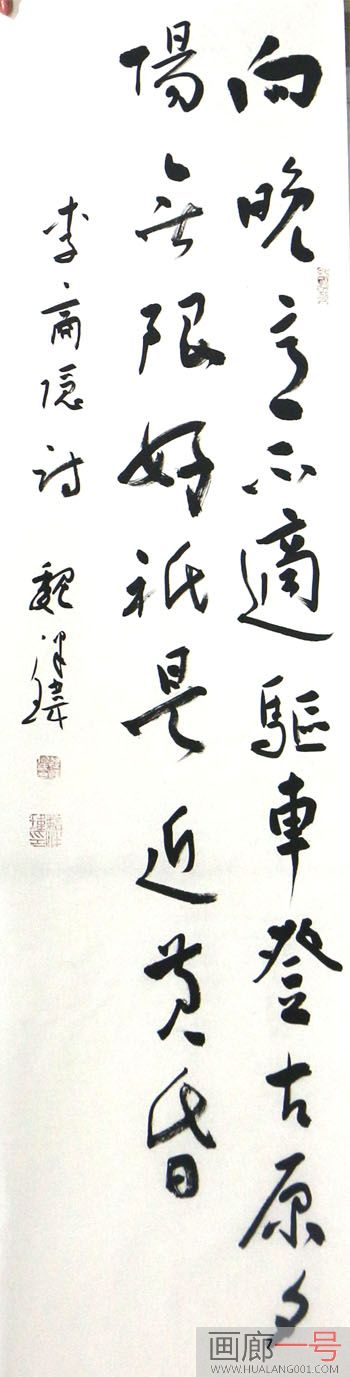 向晚意不適驅車登古原夕
陽無限好祇是近黄昏
李商隐詩 魏
画廊一号
WWW.HUALANG001.COM